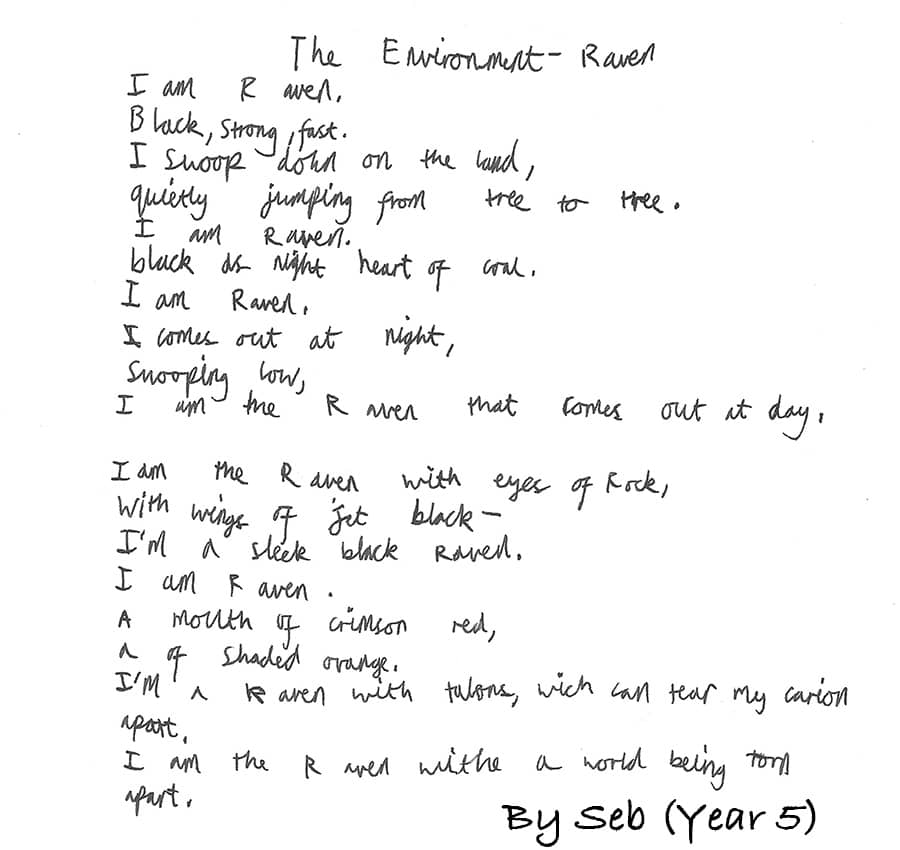 The Environment - Raven
I am Raven.
Black, strong, fast.
I swoop down on the land,
quietly jumping from tree to tree.
I am Raven.
black as night heart of coal.
I am Raven.
I comes out at night,
Swooping low,
I am the Raven that comes out at day.
I am the Raven with eyes of Rock,
With wings of jet black -
I'm a sleek black Raven.
I am Raven.
A mouth of crimson red,
a of shaded orange.
I'm a Raven with talons, wich can tear my carion
apart.
I am the Raven withe a world being torn
apart.
By Seb (Year 5)